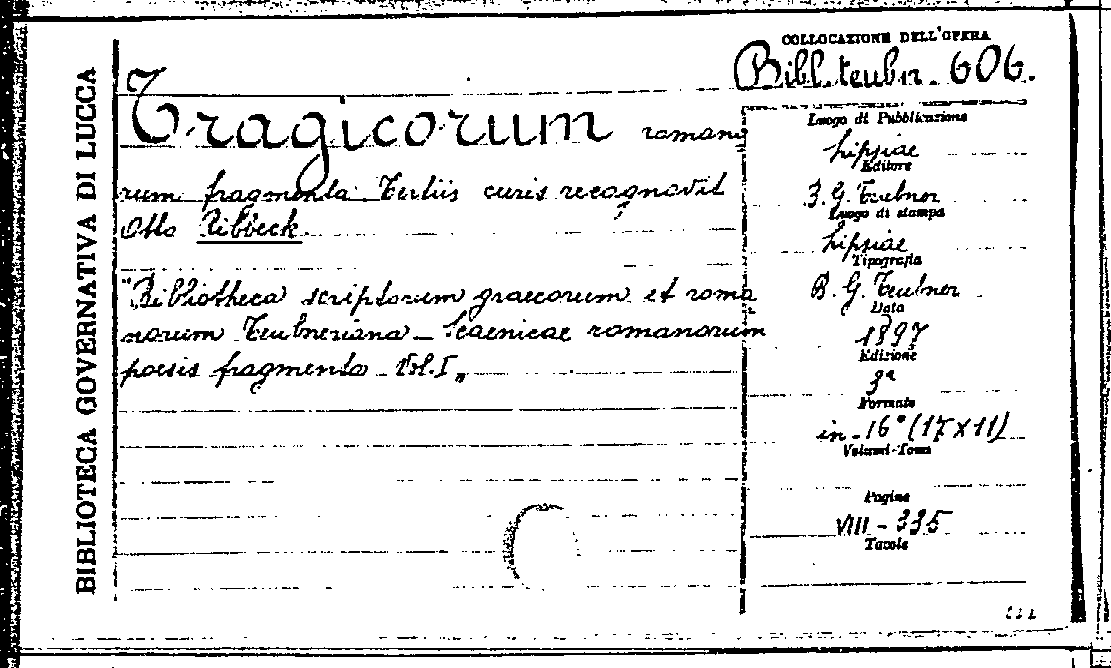 BIBLIOTECA GOVERNATIVA DI LUCCA
COLLOCAZIONE DELL'OPERA
Bibl. teubn. 606.
Tragicorum romano
rum fragmenta Tertiis curis recognovit
Otto Ribbeck
"Bibliotheca scriptorum graecorum et roma
norum Teubneriana - Scaenicae romanorum
poesis fragmenta Vol. I„
Luogo di Pubblicazione
Lipsiae
Editore
B. G. Teubner
Luogo di stampa
Lipsiae
Tipografia
B. G. Teubner
Data
1897
Edizione
3ª
Formato
in-16° (17 x 11)
Volumi-Tomi
Pagine
VIII - 335
Tavole